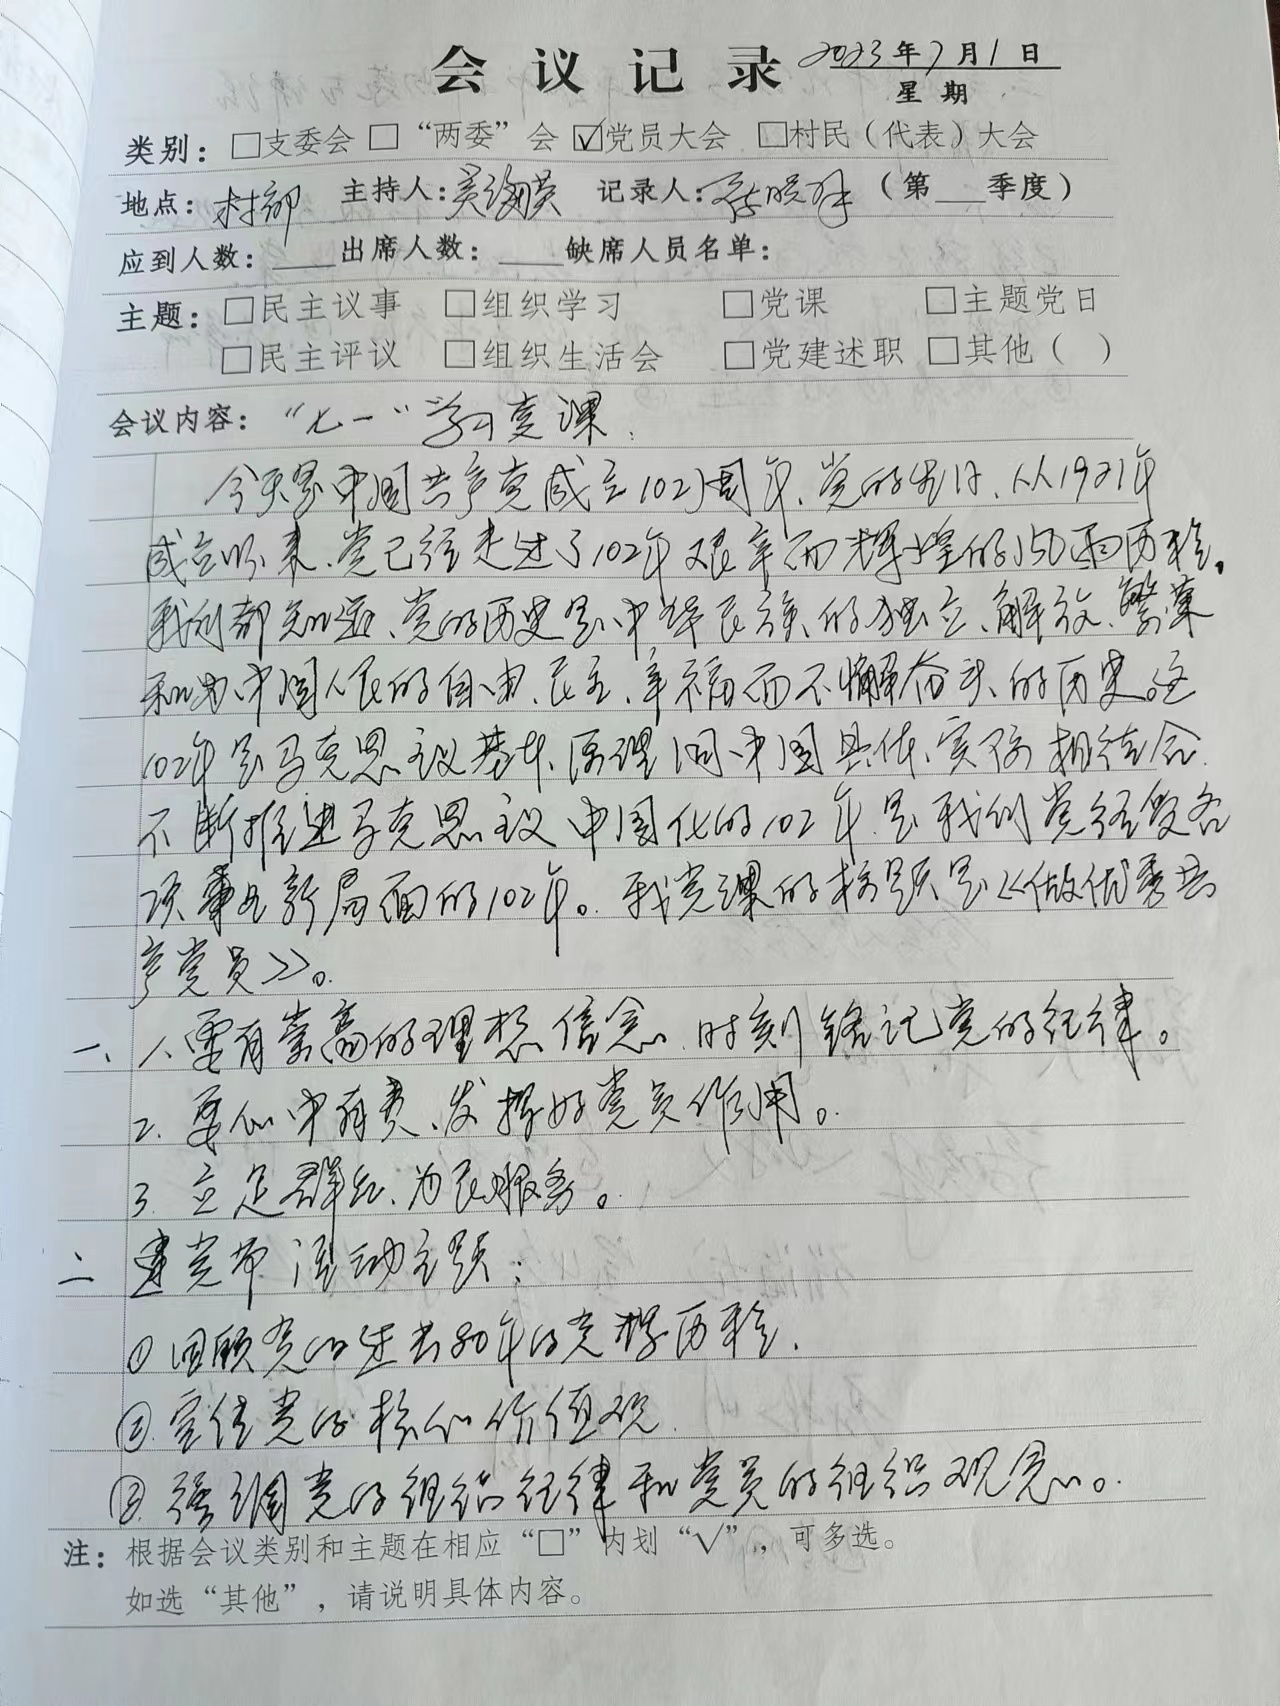 会议记录 2023年7月1日
星期
类别：□支委会 □“两委”会 ☑党员大会 □村民（代表）大会
地点：村部 主持人：吴 英 记录人： （第___季度）
应到人数：____出席人数：____缺席人员名单：
主题：□民主议事 □组织学习 □党课 □主题党日
□民主评议 □组织生活会 □党建述职 □其他（ ）
会议内容：“七一”学习党课：
今天是中国共产党成立102周年、党的生日、从1921年
成立以来、党已经走过了102年艰辛而辉煌的风雨历程。
我们都知道、党的历史是中华民族的独立、解放、繁荣
和为中国人民的自由、民主、幸福而不懈奋斗的历史。这
102年是马克思主义基本原理同中国具体实际相结合
不断推进马克思主义中国化的102年.是我们党经受各
项 新局面的102年。我党课的标题是《做优秀共
产党员》。
一、1.要有崇高的理想信念、时刻铭记党的纪律。
2. 要心中有责、发挥好党员作用。
3. 立足群众、为民服务。
二 建党节活动主题：
①回顾党的过去80年的光辉历程.
②坚信党的核心价值观.
③强调党的组织纪律和党员的组织观念。
注：根据会议类别和主题在相应“□”内划“√”，可多选。
如选“其他”，请说明具体内容。